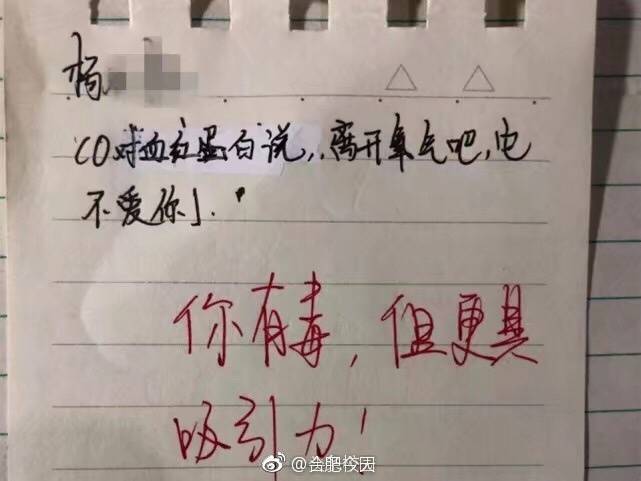 杨
CO对血红蛋白说,离开氧气吧,它
不爱你」.
你有毒,但更具
吸引力!
@合肥校园